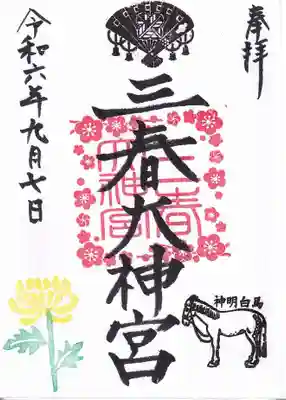 奉拝
三春大神宮
三春大神宮
令和六年九月七日
神明白馬